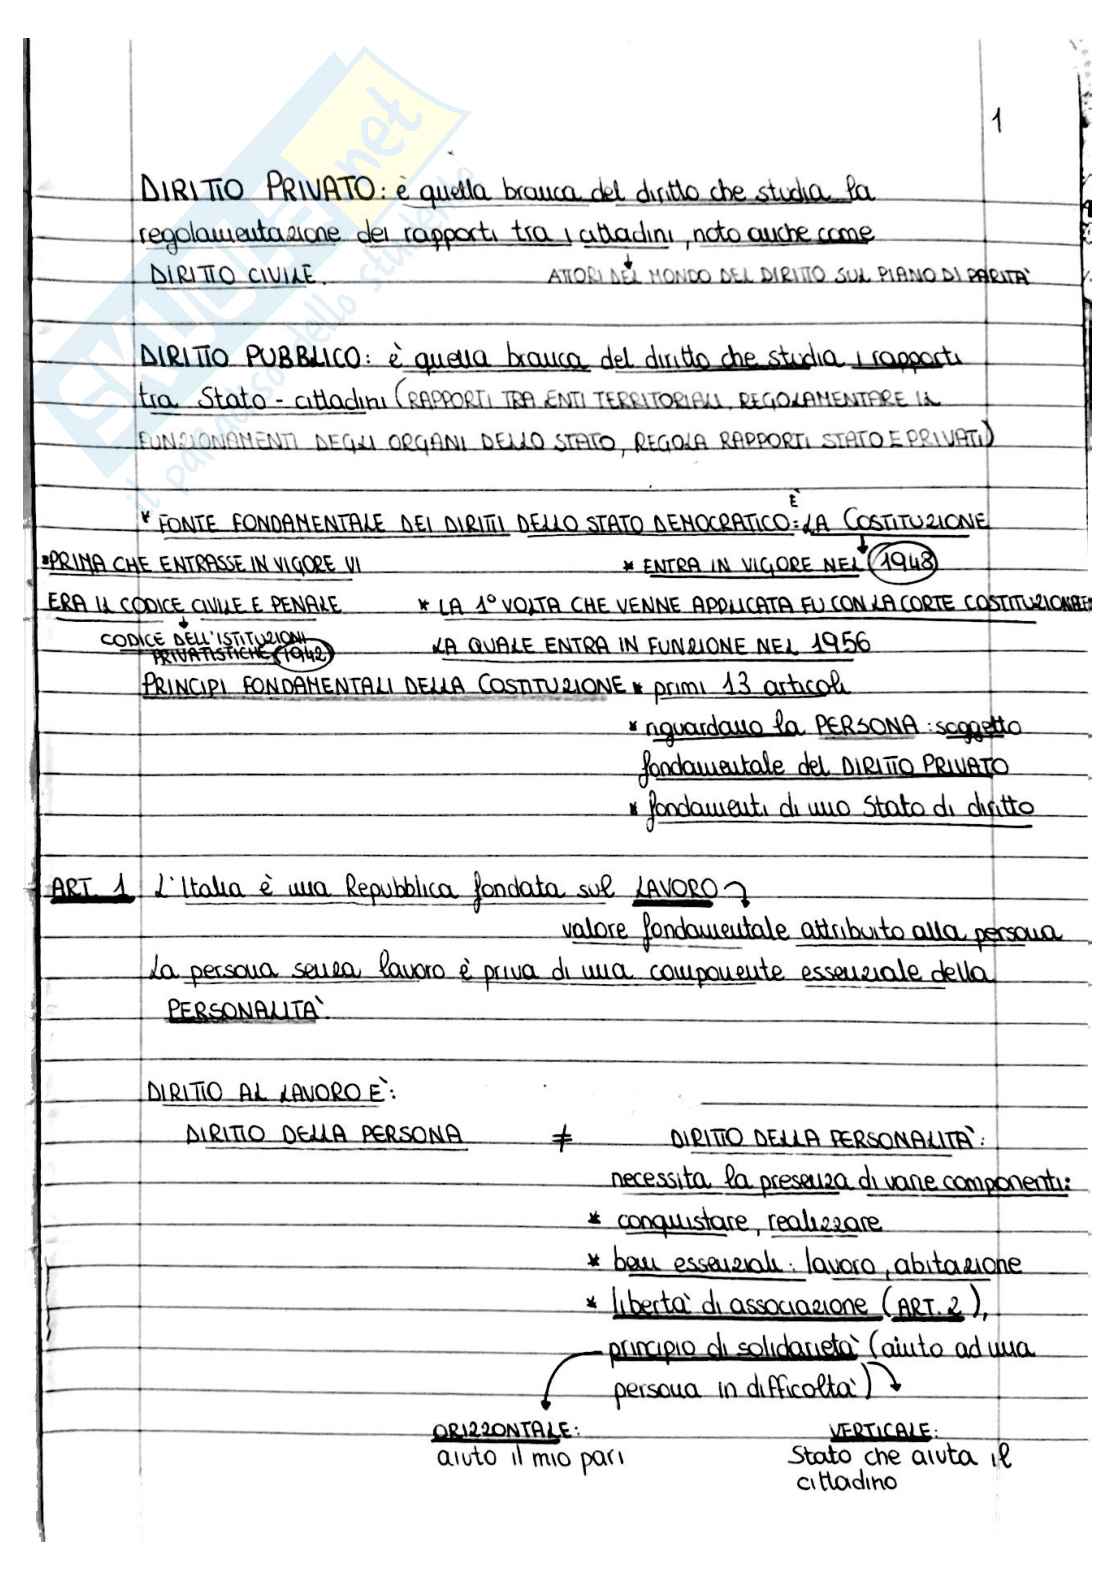 1
DIRITTO PRIVATO: è quella branca del diritto che studia la
regolamentazione dei rapporti tra i cittadini, noto anche come
DIRITTO CIVILE. ATTORI DEL MONDO DEL DIRITTO SUL PIANO DI PARITÀ
DIRITTO PUBBLICO: è quella branca del diritto che studia i rapporti
tra Stato - cittadini (RAPPORTI TRA ENTI TERRITORIALI, REGOLAMENTARE IL
FUNZIONAMENTI DEGLI ORGANI DELLO STATO, REGOLA RAPPORTI STATO E PRIVATI)
* FONTE FONDAMENTALE DEI DIRITTI DELLO STATO DEMOCRATICO: È LA COSTITUZIONE
*PRIMA CHE ENTRASSE IN VIGORE VI * ENTRA IN VIGORE NEL 1948
ERA IL CODICE CIVILE E PENALE * LA 1° VOLTA CHE VENNE APPLICATA FU CON LA CORTE COSTITUZIONALE
CODICE DELL'ISTITUZIONI
PRIVATISTICHE (1942) LA QUALE ENTRA IN FUNZIONE NEL 1956
PRINCIPI FONDAMENTALI DELLA COSTITUZIONE * primi 13 articoli
* riguardano la PERSONA: soggetto
fondamentale del DIRITTO PRIVATO
* fondamenti di uno Stato di diritto
ART. 1 L'Italia è una Repubblica fondata sul LAVORO
valore fondamentale attribuito alla persona
La persona senza lavoro è priva di una componente essenziale della
PERSONALITÀ.
DIRITTO AL LAVORO È:
DIRITTO DELLA PERSONA ≠ DIRITTO DELLA PERSONALITÀ:
necessita la presenza di varie componenti:
* conquistare, realizzare
* beni essenziali: lavoro, abitazione
* libertà di associazione (ART. 2),
principio di solidarietà (aiuto ad una
persona in difficoltà)
ORIZZONTALE: VERTICALE:
aiuto il mio pari Stato che aiuta il
cittadino
SKUOLA.net
il paradiso dello studente